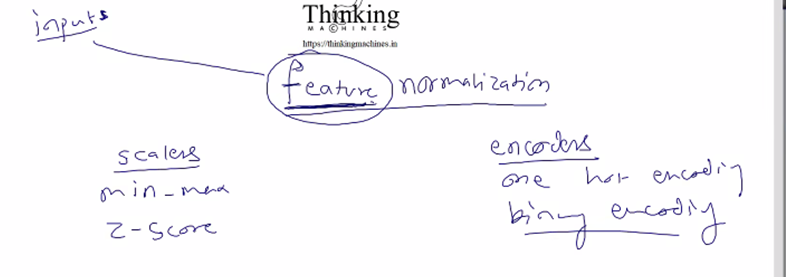 inputs
Thinking
MACHINES
https://thinkingmachines.in
feature normalization
scalers
encoders
min-max
one hot encoding
z-score
binary encoding